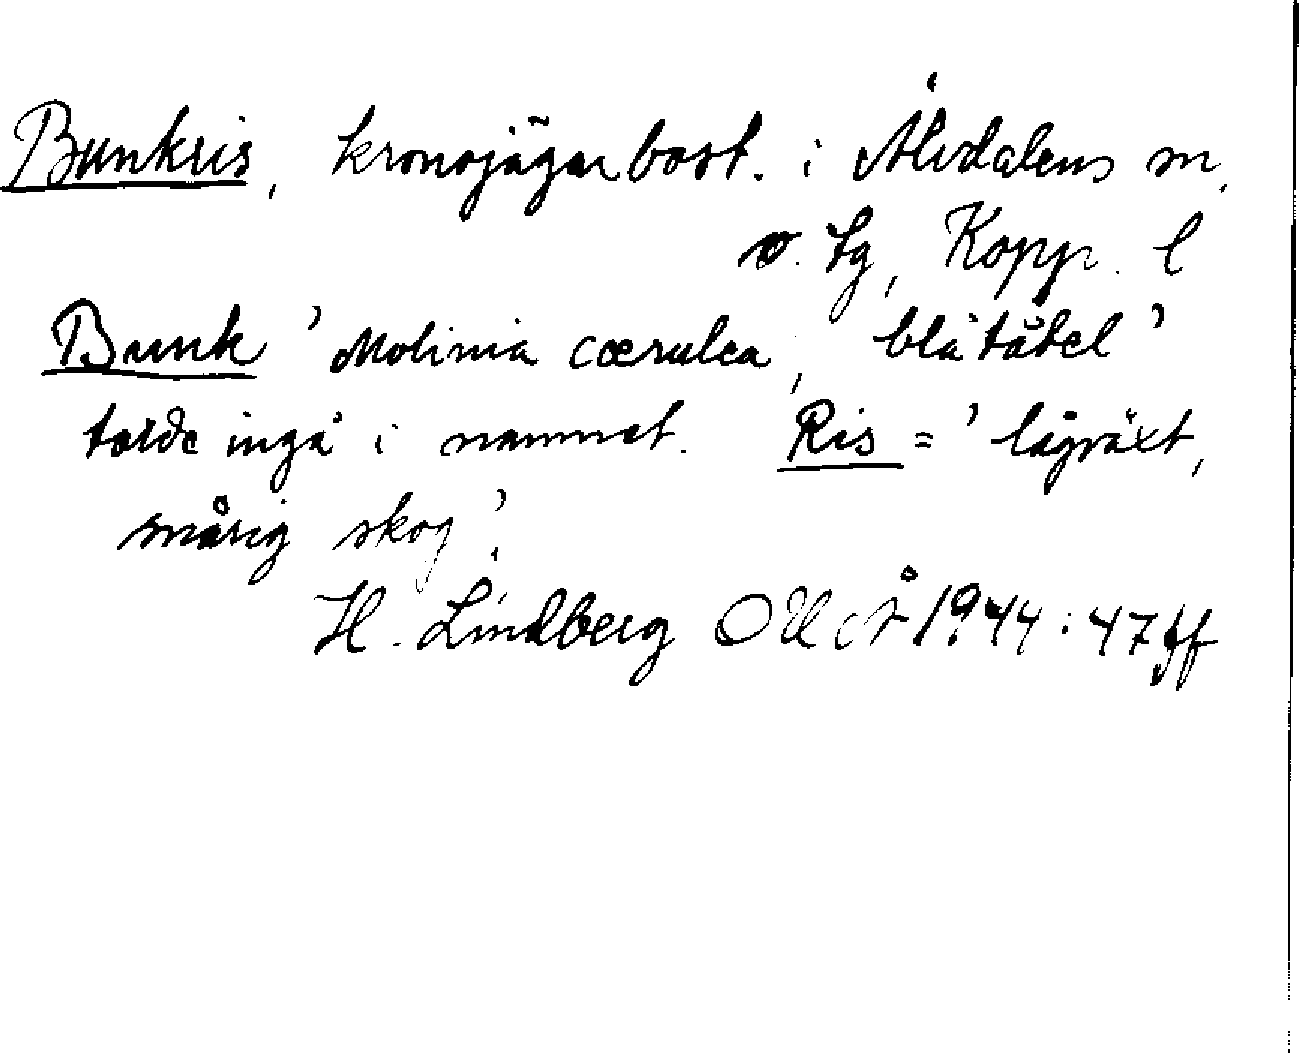 Bunkris, kronojägarbost. i Älvdalens sn,
o. tg, Kopp. l
Bunk 'Molinia cœrulea, blåtåtel'
torde ingå i namnet. Ris = 'lågväxt,
snårig skog'.
H. Lindberg OUÅ 1944:47 ff